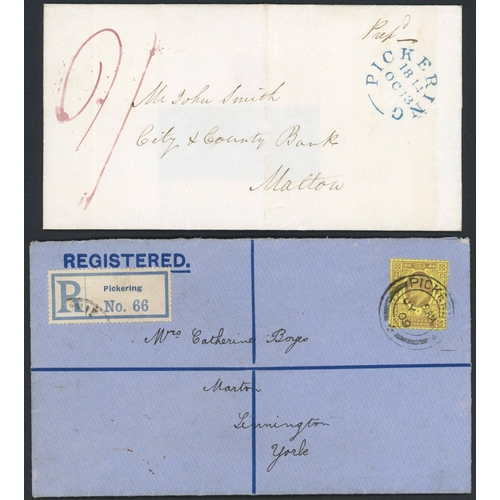 Prepd
PICKERING
1844
OC 13
Mr John Smith
City & County Bank
Malton
REGISTERED.
R
Pickering
No. 66
PICKE
09
Mrs Catherine Boyes
Marton
Sinnington
York